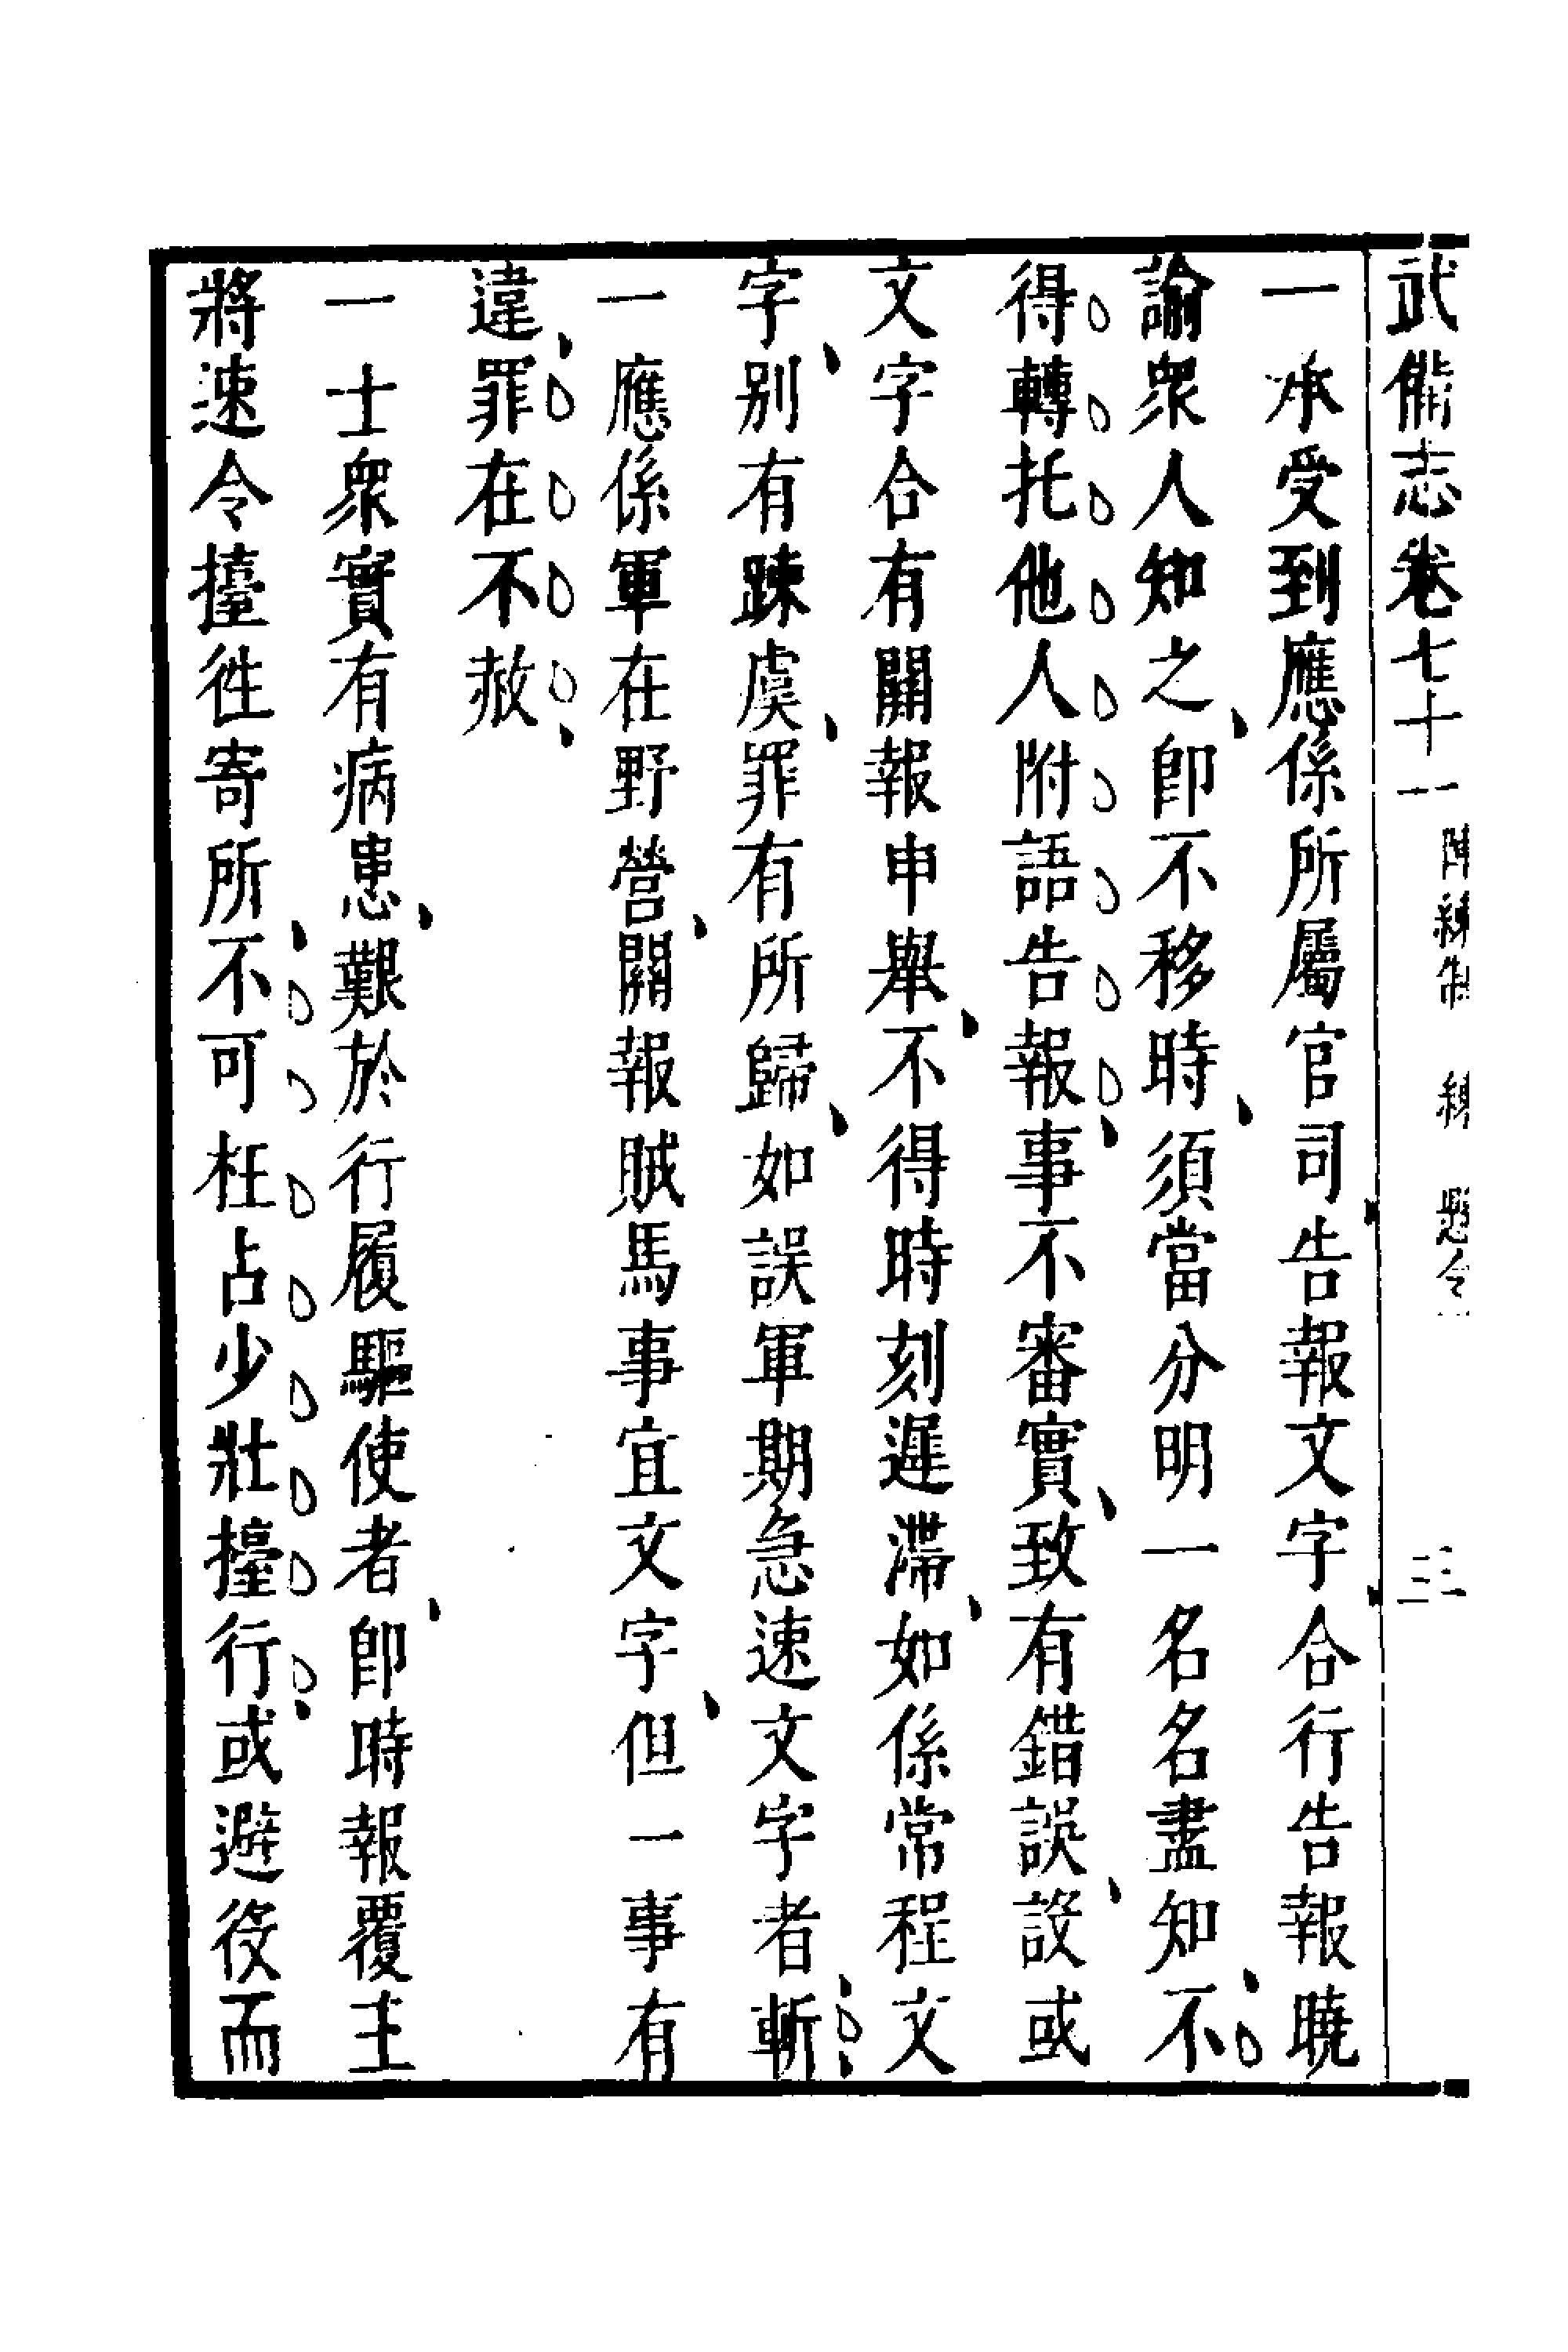 武備志卷七十一 陣練制 練 懸令一 三
一承受到應係所屬官司告報文字合行告報曉
諭衆人知之即不移時須當分明一名名盡知不
得轉托他人附語告報事不審實致有錯誤設或
文字合有關報申舉不得時刻遲滯如係常程文
字別有踈虞罪有所歸如誤軍期急速文字者斬
一應係軍在野營關報賊馬事宜文字但一事有
違罪在不赦
一士衆實有病患艱於行履驅使者即時報覆主
將速令擡徃寄所不可枉占少壯擡行或避役而